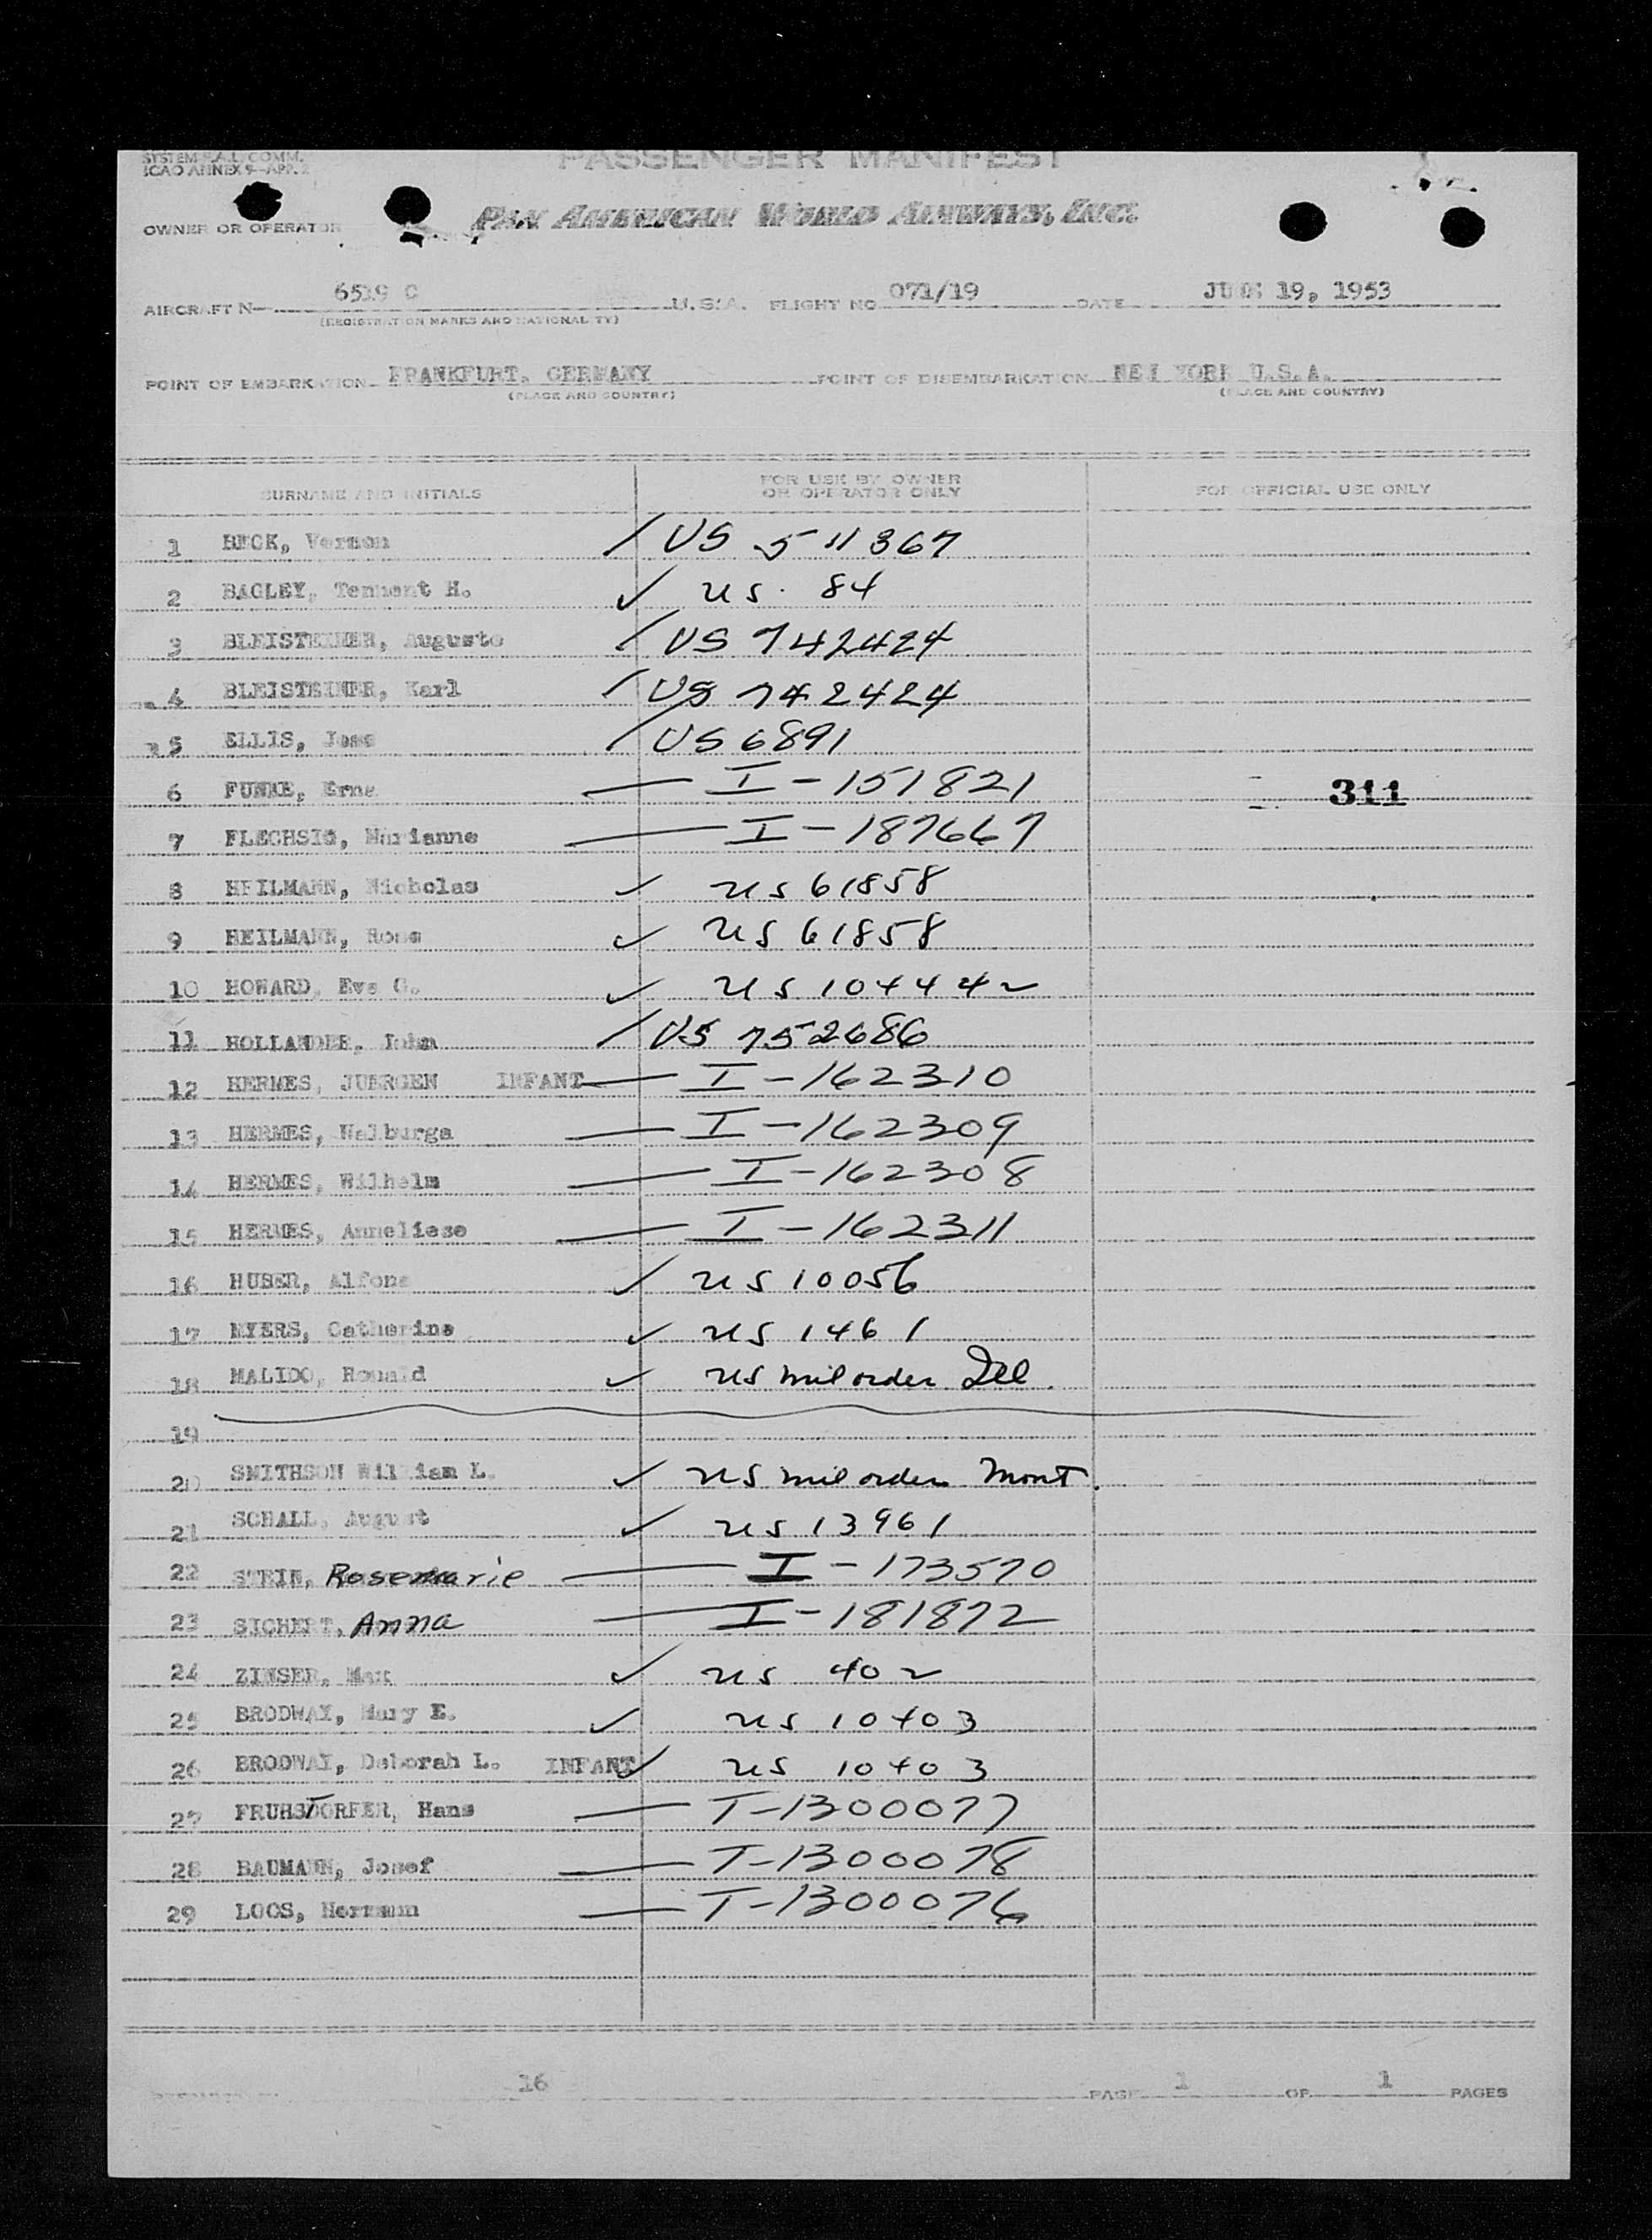 SYSTEM F.A.L. COMM.
ICAO ANNEX 9-APP. 2
PASSENGER MANIFEST
OWNER OR OPERATOR PAN AMERICAN WORLD AIRWAYS, INC.
AIRCRAFT N- 6519 C U.S.A. FLIGHT NO 071/19 DATE JUNE 19, 1953
(REGISTRATION MARKS AND NATIONALITY)
POINT OF EMBARKATION FRANKFURT, GERMANY POINT OF DISEMBARKATION NEW YORK U.S.A.
(PLACE AND COUNTRY) (PLACE AND COUNTRY)
SURNAME AND INITIALS FOR USE BY OWNER OR OPERATOR ONLY FOR OFFICIAL USE ONLY
1 BECK, Vernon / US 511367
2 BAGLEY, Tennent H. ✓ US. 84
3 BLEISTEINER, Auguste / US 742424
4 BLEISTEINER, Karl / US 742424
5 ELLIS, / US 6891
6 FUNKE, Erna — I-151821 311
7 FLECHSIG, Marianne — I-187667
8 HEILMANN, Nicholas ✓ US 61858
9 HEILMANN, Rosa ✓ US 61858
10 HOWARD, Eve G. ✓ US 104442
11 HOLLANDER, John / US 752686
12 HERMES, JUERGEN INFANT — I-162310
13 HERMES, Walburga — I-162309
14 HERMES, Wilhelm — I-162308
15 HERMES, Anneliese — I-162311
16 HUBER, Alfons ✓ US 10056
17 MYERS, Catherine ✓ US 1461
18 MALIDO, Ronald ✓ US mil order Ill.
19
20 SMITHSON William L. ✓ US mil order Mont.
21 SCHALL, August ✓ US 13961
22 STEIN, Rosemarie — I-173570
23 SICHERT, Anna — I-181872
24 ZINSER, Max ✓ US 402
25 BRODWAY, Mary E. ✓ US 10403
26 BRODWAY, Deborah L. INFANT ✓ US 10403
27 FRUHSTORFER, Hans — T-1300077
28 BAUMANN, Josef — T-1300078
29 LOOS, Hermann — T-1300076
16 PAGE 1 OF 1 PAGES